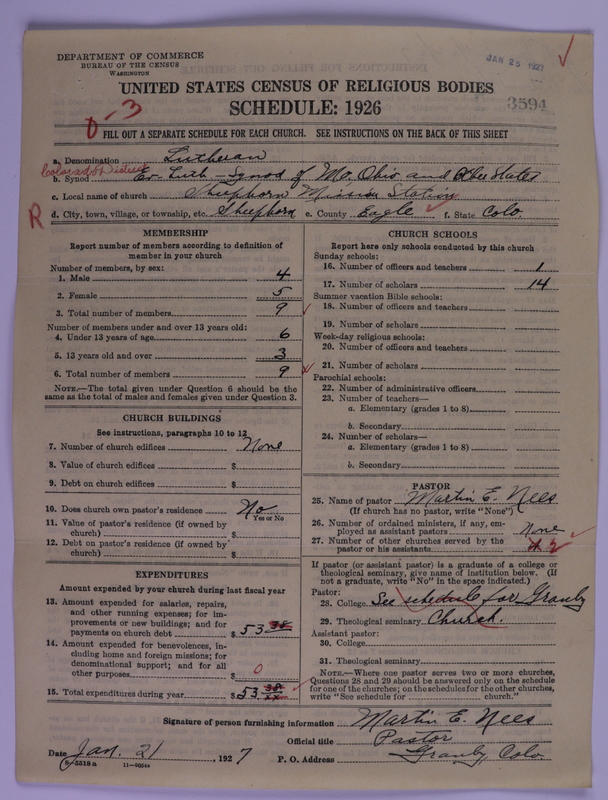 DEPARTMENT OF COMMERCE
BUREAU OF THE CENSUS
WASHINGTON
JAN 25 1927
UNITED STATES CENSUS OF RELIGIOUS BODIES
SCHEDULE: 1926
3594
FILL OUT A SEPARATE SCHEDULE FOR EACH CHURCH. SEE INSTRUCTIONS ON THE BACK OF THIS SHEET
a. Denomination Lutheran
Colorado District
b. Synod Ev. Luth - Synod of Mo. Ohio and Other States
c. Local name of church Sheephorn Mission Station
R
d. City, town, village, or township, etc. Sheephorn e. County Eagle f. State Colo.
MEMBERSHIP
Report number of members according to definition of member in your church
Number of members, by sex:
1. Male 4
2. Female 5
3. Total number of members 9
Number of members under and over 13 years old:
4. Under 13 years of age 6
5. 13 years old and over 3
6. Total number of members 9
NOTE.—The total given under Question 6 should be the same as the total of males and females given under Question 3.
CHURCH BUILDINGS
See instructions, paragraphs 10 to 12
7. Number of church edifices None
8. Value of church edifices $
9. Debt on church edifices $
10. Does church own pastor's residence No
Yes or No
11. Value of pastor's residence (if owned by church) $
12. Debt on pastor's residence (if owned by church) $
EXPENDITURES
Amount expended by your church during last fiscal year
13. Amount expended for salaries, repairs, and other running expenses; for improvements or new buildings; and for payments on church debt $ 53 38
14. Amount expended for benevolences, including home and foreign missions; for denominational support; and for all other purposes $ 0
15. Total expenditures during year $ 53 38
CHURCH SCHOOLS
Report here only schools conducted by this church
Sunday schools:
16. Number of officers and teachers 1
17. Number of scholars 14
Summer vacation Bible schools:
18. Number of officers and teachers
19. Number of scholars
Week-day religious schools:
20. Number of officers and teachers
21. Number of scholars
Parochial schools:
22. Number of administrative officers
23. Number of teachers—
a. Elementary (grades 1 to 8)
b. Secondary
24. Number of scholars—
a. Elementary (grades 1 to 8)
b. Secondary
PASTOR
25. Name of pastor Martin E. Nees
(If church has no pastor, write "None")
26. Number of ordained ministers, if any, employed as assistant pastors None
27. Number of other churches served by the pastor or his assistants 2
If pastor (or assistant pastor) is a graduate of a college or theological seminary, give name of institution below. (If not a graduate, write "No" in the space indicated.)
Pastor:
28. College See schedule for Granby
29. Theological seminary Church.
Assistant pastor:
30. College
31. Theological seminary
NOTE.—Where one pastor serves two or more churches, Questions 28 and 29 should be answered only on the schedule for one of the churches; on the schedules for the other churches, write "See schedule for ______ church."
Signature of person furnishing information Martin E. Nees
Official title Pastor
Date Jan. 21, 1927 P. O. Address Granby, Colo.
8-5518 a